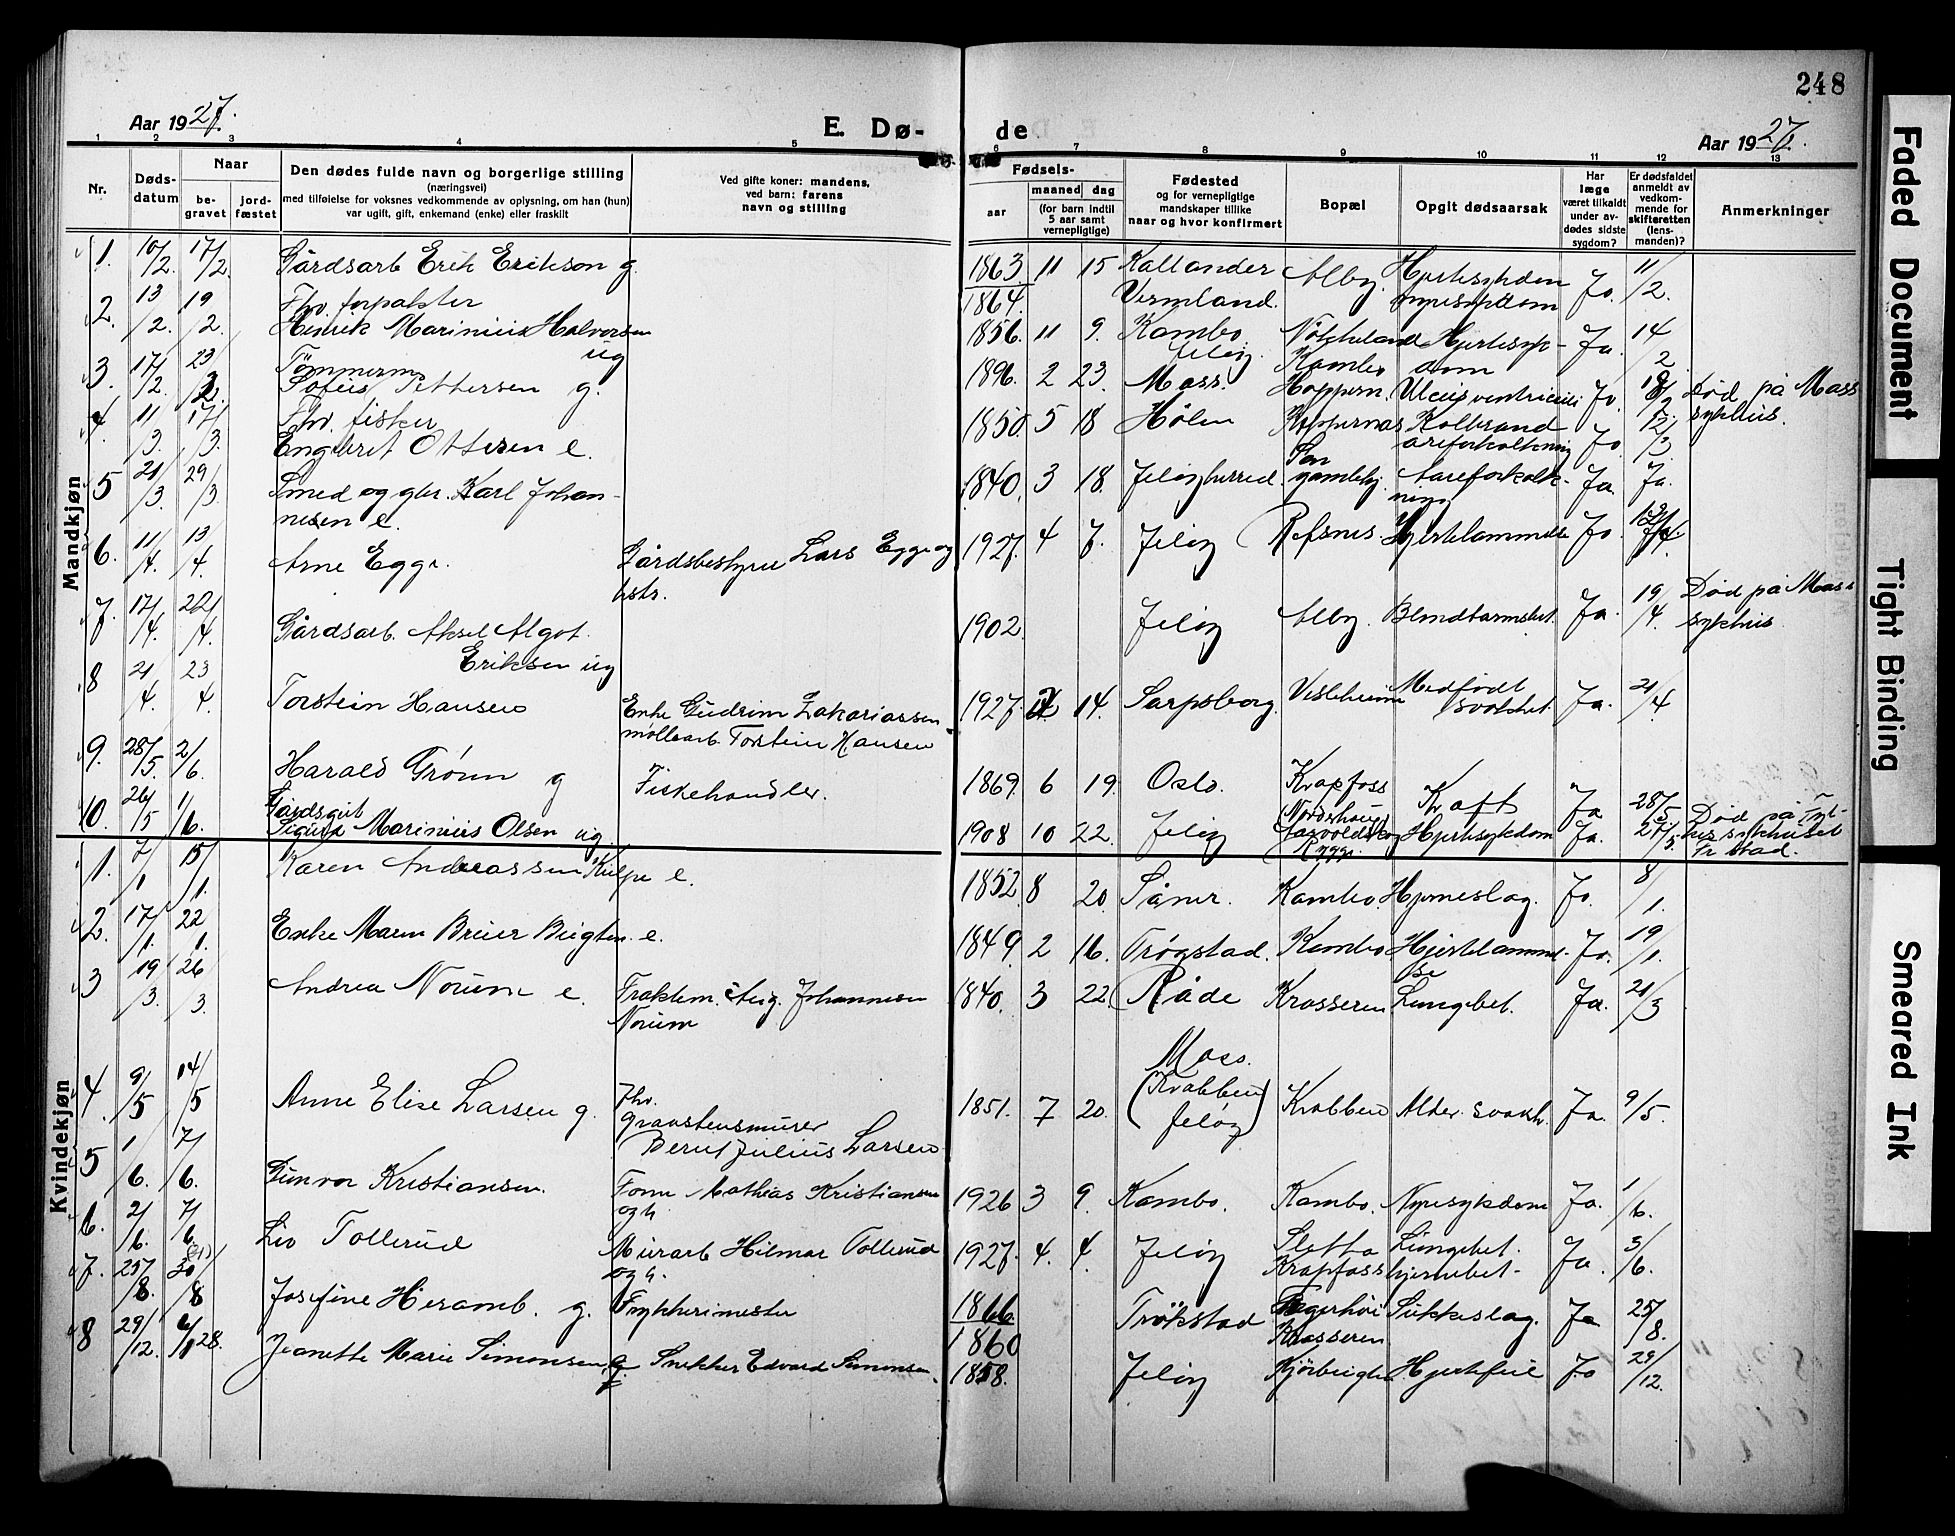 248
Aar 1927.
E. Dø-
de
Aar 1927.
1 2 3 4 5 6 7 8 9 10 11 12 13
Nr.
Døds-
datum
Naar
be-
gravet
jord-
fæstet
Den dødes fulde navn og borgerlige stilling
(næringsvei)
med tilføielse for voksnes vedkommende av oplysning, om han (hun)
var ugift, gift, enkemand (enke) eller fraskilt
Ved gifte koner: mandens,
ved barn: farens
navn og stilling
Fødsels-
aar
maaned
dag
(for barn indtil
5 aar samt
vernepligtige)
Fødested
og for vernepligtige
mandskaper tillike
naar og hvor konfirmert
Bopæl
Opgit dødsaarsak
Har
læge
været tilkaldt
under av-
dødes sidste
sygdom?
Er dødsfaldet
anmeldt av
vedkom-
mende for
skifteretten
(lens-
manden)?
Anmerkninger
Mandkjøn
1. 10/2. 17/2. Gårdsarb. Erik Erikson g. 1863. 11 15 Vermland. Alby. Ja. 11/2.
1864.
2. 13/2. 19/2. Fhv. forpakter
Henrik Marinius Halvorsen
ug 1856. 11 9. Kambo Jeløy. Kambo Hjertesyk-
dom Ja. 14/2
3. 17/2 23/2. Tömmerm.
Pettersen g. 1896. 2 23. Moss. Ja. Død på Moss
sykhus.
4. 11/3. 17/3. Fhv. fisker
Engbret Ottersen e. 1850. 5 18 Hølen Son Koldbrand
åreforkalkning Ja. 12/3
5 21/3 29/3 Smed og gbr. Karl Johan-
nesen e. 1840. 3 18. Jeløy herred gamleby. Aareforkalk-
ning Ja. Ja.
6. 11/4. 13/4. Arne Egge. Gårdsbestyrer Lars Egge og
hstr. 1927. 4 7. Jeløy Refsnes. Hjertelammelse Ja.
7. 17/4. Gårdsarb. Aksel Algot
Eriksen ug 1902. Jeløy Alby. Blindtarmsbet. Ja. 19/4. Død på Moss
sykhus.
8 21/4. 23/4. Torstein Hansen Enke Gudrun Zakariassen
møllearb. Torstein Hansen 1927. 14. Sarpsborg. Medfødt
svakhet. Ja. 21/4
9. 28/5. 2/6. Harald Grønn g Fiskehandler. 1869. 6 19. Oslo. Krapfoss Kræft Ja 28/5.
10. 26/5 1/6. Gårdsgut
Sigurd Marinius Olsen ug. 1908 10 22. Jeløy Rygge. Hjertesykdom Ja. 27/5. Død på Fyl-
kessykhuset
Fr.stad.
Kvindekjøn
1. 7/1 15/1. Karen Andreassen Kulpe e. 1852. 8 20. Såner. Kambo. Hjerneslag. Ja. 8/1.
2. 17/1. 22/1. Enke Maren e. 1849. 2 16. Trøgstad. Kambo Hjertelammel-
se Ja. 19/1.
3 19/3. 26/3. Andrea Norum e. Johannesen
Norum 1840. 3 22. Råde Krosseren Lungebet. Ja. 21/3
4. 9/5 14/5 Anne Elise Larsen g. Fhv.
graastensmurer
Bernt Julius Larsen 1851. 7 20. Moss.
(Krabben
Jeløy) Krabben Alder. svakh. Ja. 9/5
5 1/6. 7/6. Gunvor Kristiansen. Mathias Kristiansen
og h. 1926 3 9. Kambo. Kambo. Nyresykdom Ja. 1/6.
6. 2/6. 7/6. Liv Tollerud Murarb Hilmar Tollerud
og h. 1927. 4. 4. Jeløy Sletta
Krapfoss Lungebet.
hjernebet. Ja. 3/6.
7. 25/8. 30/8 Josefine Heramb. g. Trykkerimester 1866 Trökstad Krosseren Ja 25/8.
1860
8 29/12. 28. Jeanette Marie Simonsen, g. Snekker Edvard Simonsen. 1858. Jeløy Hjertefeil Ja 29/12.
Faded Document
Tight Binding
Smeared Ink